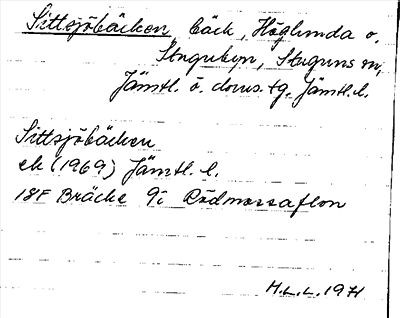 Sittsjöbäcken, bäck, Höglunda o.
Stugubyn, Stuguns sn,
Jämtl. ö. doms. tg. Jämtl. l.
Sittsjöbäcken
ek (1969) Jämtl. l.
18F Bräcke 9i Rödmossaflon
H.L.L. 1971